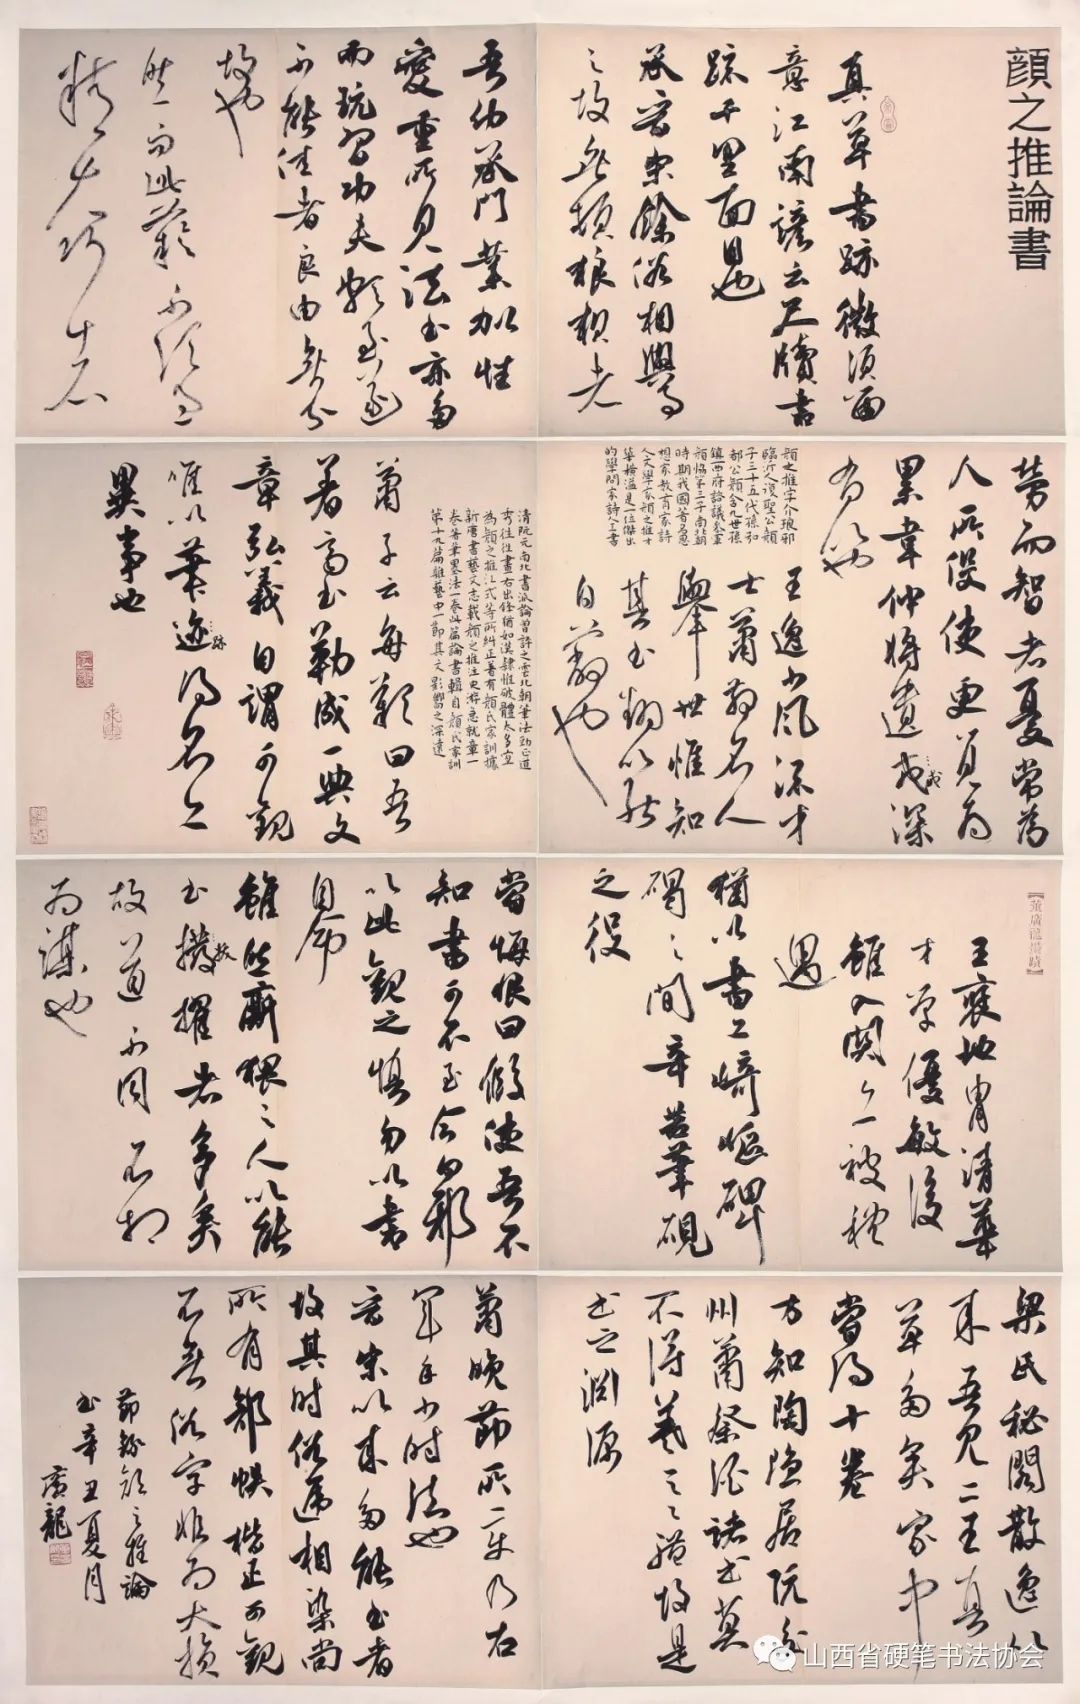 顔之推論書
真草書跡微須留
意江南諺云尺牘書
疏千里面目也
承晉宋餘俗相與事
之故無頓狼狽者
吾幼承門業加性
愛重所見法書亦多
而玩習功夫頗至遂
不能佳者良由無分
故也
然而此藝不須過
精夫巧者
勞而智者憂常為
人所役使更覺為
累韋仲將遺戒深
有以也
顔之推字介琅邪
臨沂人復聖公顔
子三十五代孫弘
都公顔含九世孫
鎮西府諮議參軍
顔協第三子南北朝
時期我國著名思
想家教育家詩
人文學家顔之推才
華橫溢是一位傑出
的學問家詩人工書
王逸少風流才
士蕭散名人
舉世惟知
其書翻以能
自蔽也
清阮元南北書派論曾評之雲北朝筆法勁正遒
秀往往畫石出鋒猶如漢隸惟破體太多宜
為顔之推江式等所糾正著有顔氏家訓據
新唐書藝文志載顔之推注史游急就章一
卷筆墨法一卷此篇論書輯自顔氏家訓
第十九篇雜藝中一節其文影響之深遠
蕭子云每歎曰吾
著齊書勒成一典文
章弘義自謂可觀
唯以筆迹得名亦
跡
異事也
王襃地冑清華
才學優敏後
雖入關亦被禮
遇
猶以書工崎嶇碑
碣之間辛苦筆硯
之役
嘗悔恨曰假使吾不
知書可不至今日邪
以此觀之慎勿以書
自命
雖然廝猥之人以能
書拔擢者多矣
拔
故道不同不相
為謀也
梁氏秘閣散逸以
來吾見二王真
草多矣家中
嘗得十卷
方知陶隱居阮交
州蕭祭酒諸書莫
不得羲之之體故是
書之淵源
蕭晚節所變乃右
軍年少時法也
晉宋以來多能書者
故其時俗遞相染尚
所有部帙楷正可觀
不無俗字非為大損
節錄顔之推論
書辛丑夏月
廣龍
山西省硬笔书法协会